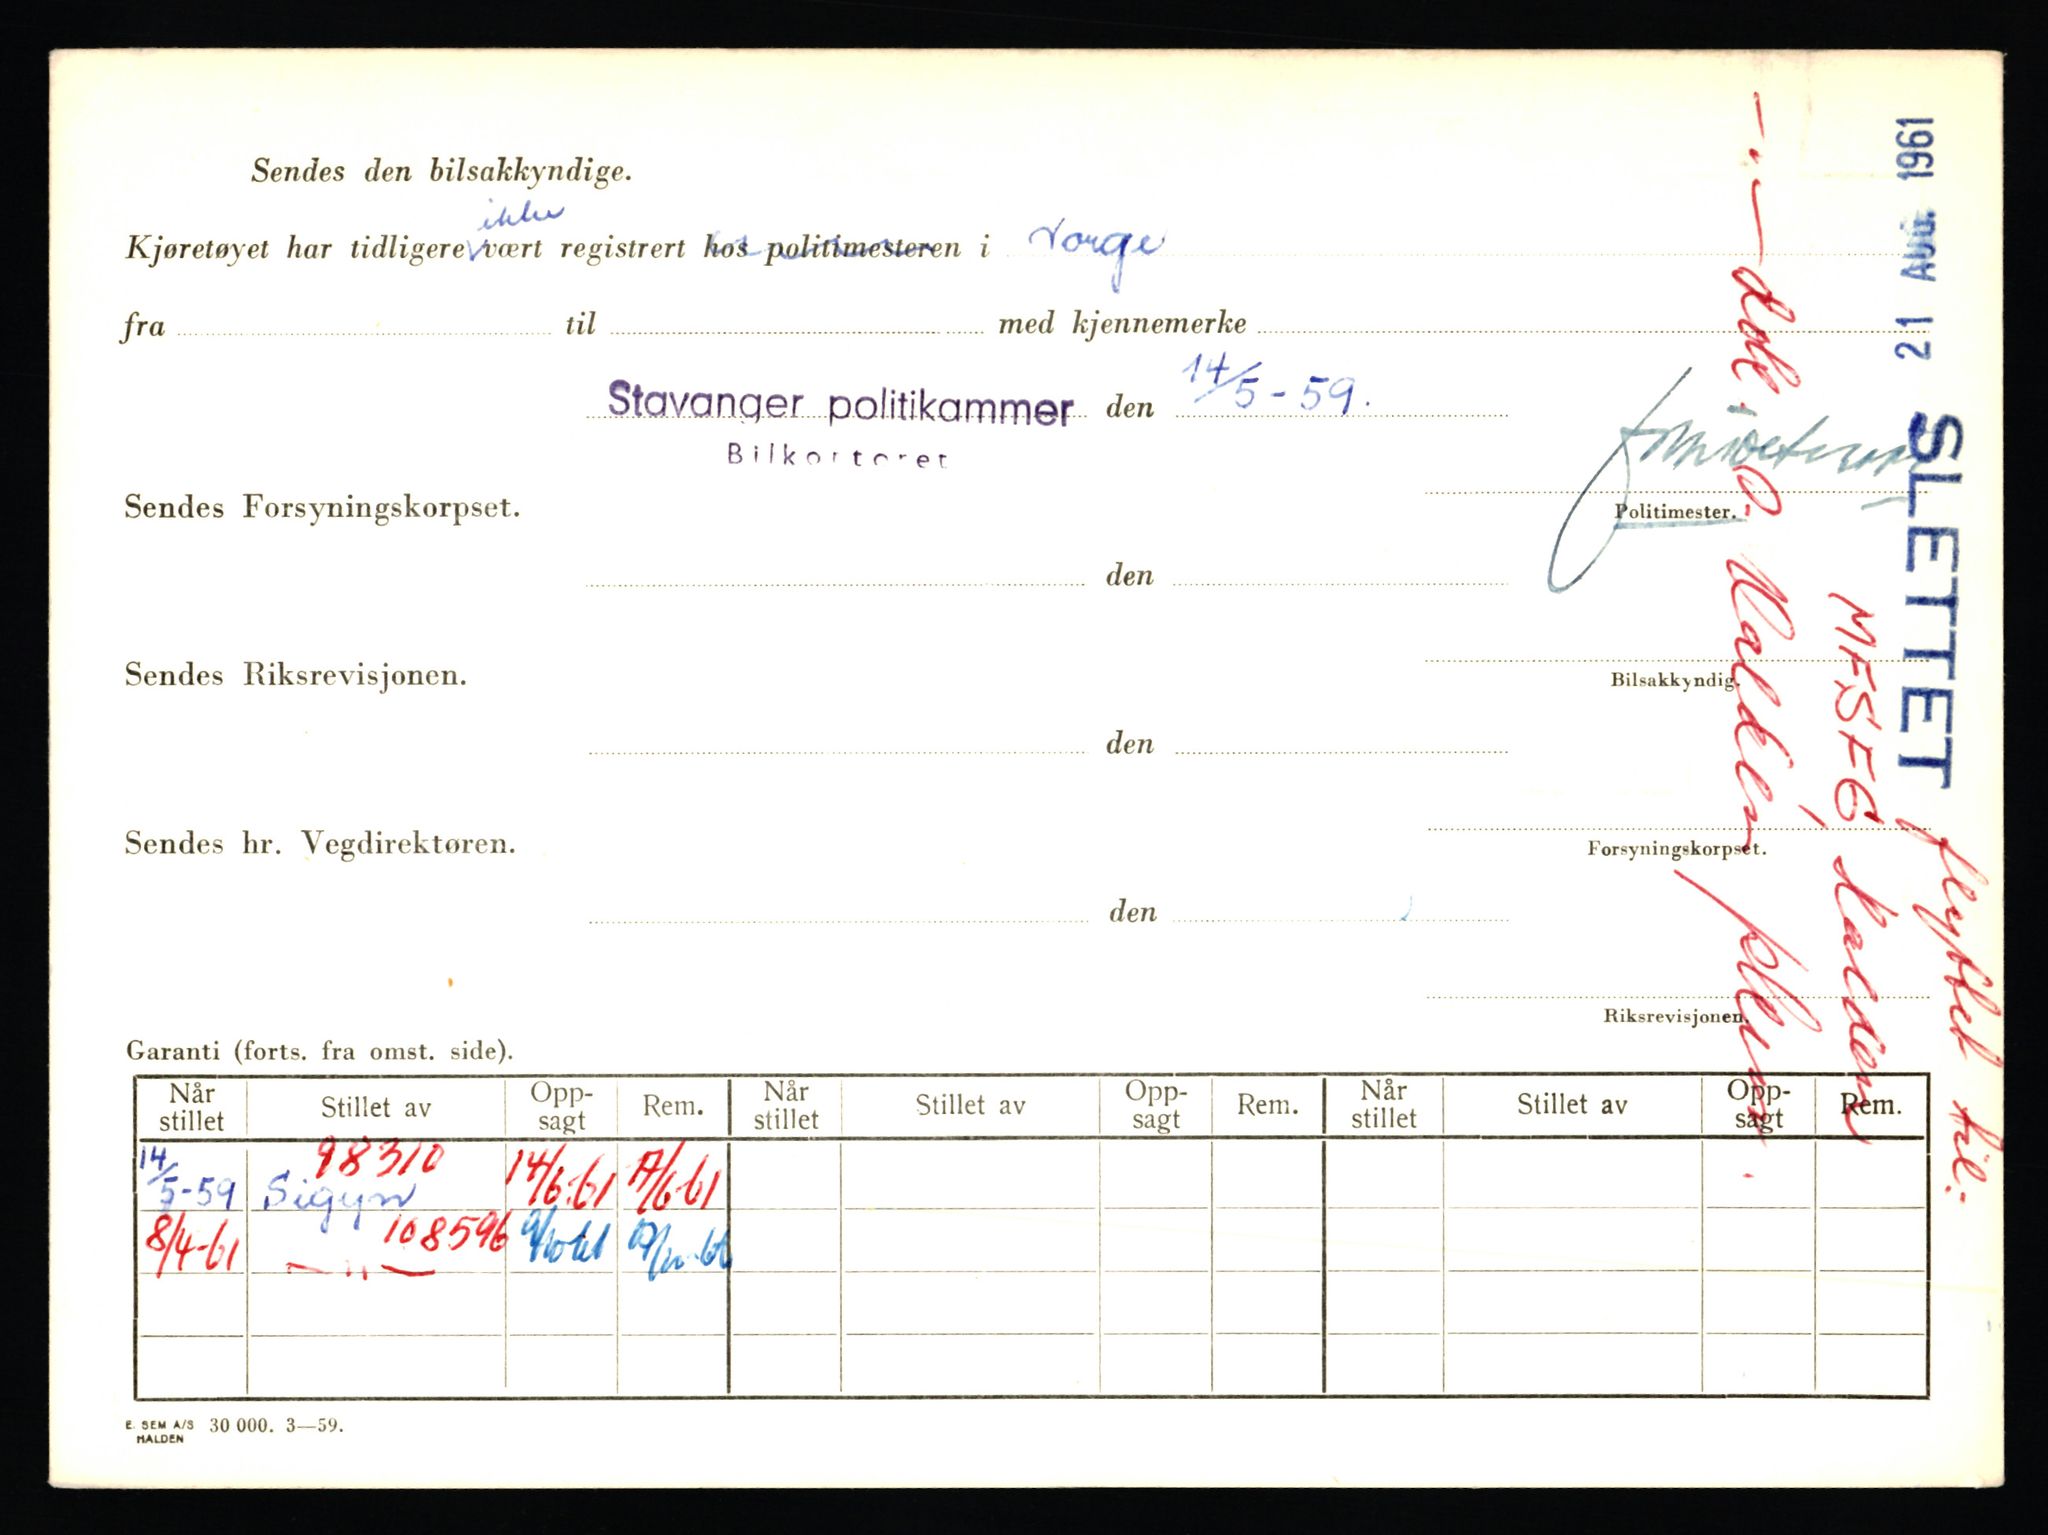 Sendes den bilsakkyndige.
ikke
Kjøretøyet har tidligere vært registrert hos politimesteren i Norge
fra til med kjennemerke
Stavanger politikammer den 14/5-59.
Bilkontoret
Sendes Forsyningskorpset.
Politimester.
den
Sendes Riksrevisjonen.
Bilsakkyndig.
den
Sendes hr. Vegdirektøren.
Forsyningskorpset.
den
Riksrevisjonen.
21 AUG. 1961
SLETTET flyttet til:
Garanti (forts. fra omst. side).
Når stillet Stillet av Opp-sagt Rem. Når stillet Stillet av Opp-sagt Rem. Når stillet Stillet av Opp-sagt Rem.
98310
14/5-59 Sigyn 14/6-61
8/4-61 — " — 108596
E. SEM A/S HALDEN 30 000. 3—59.